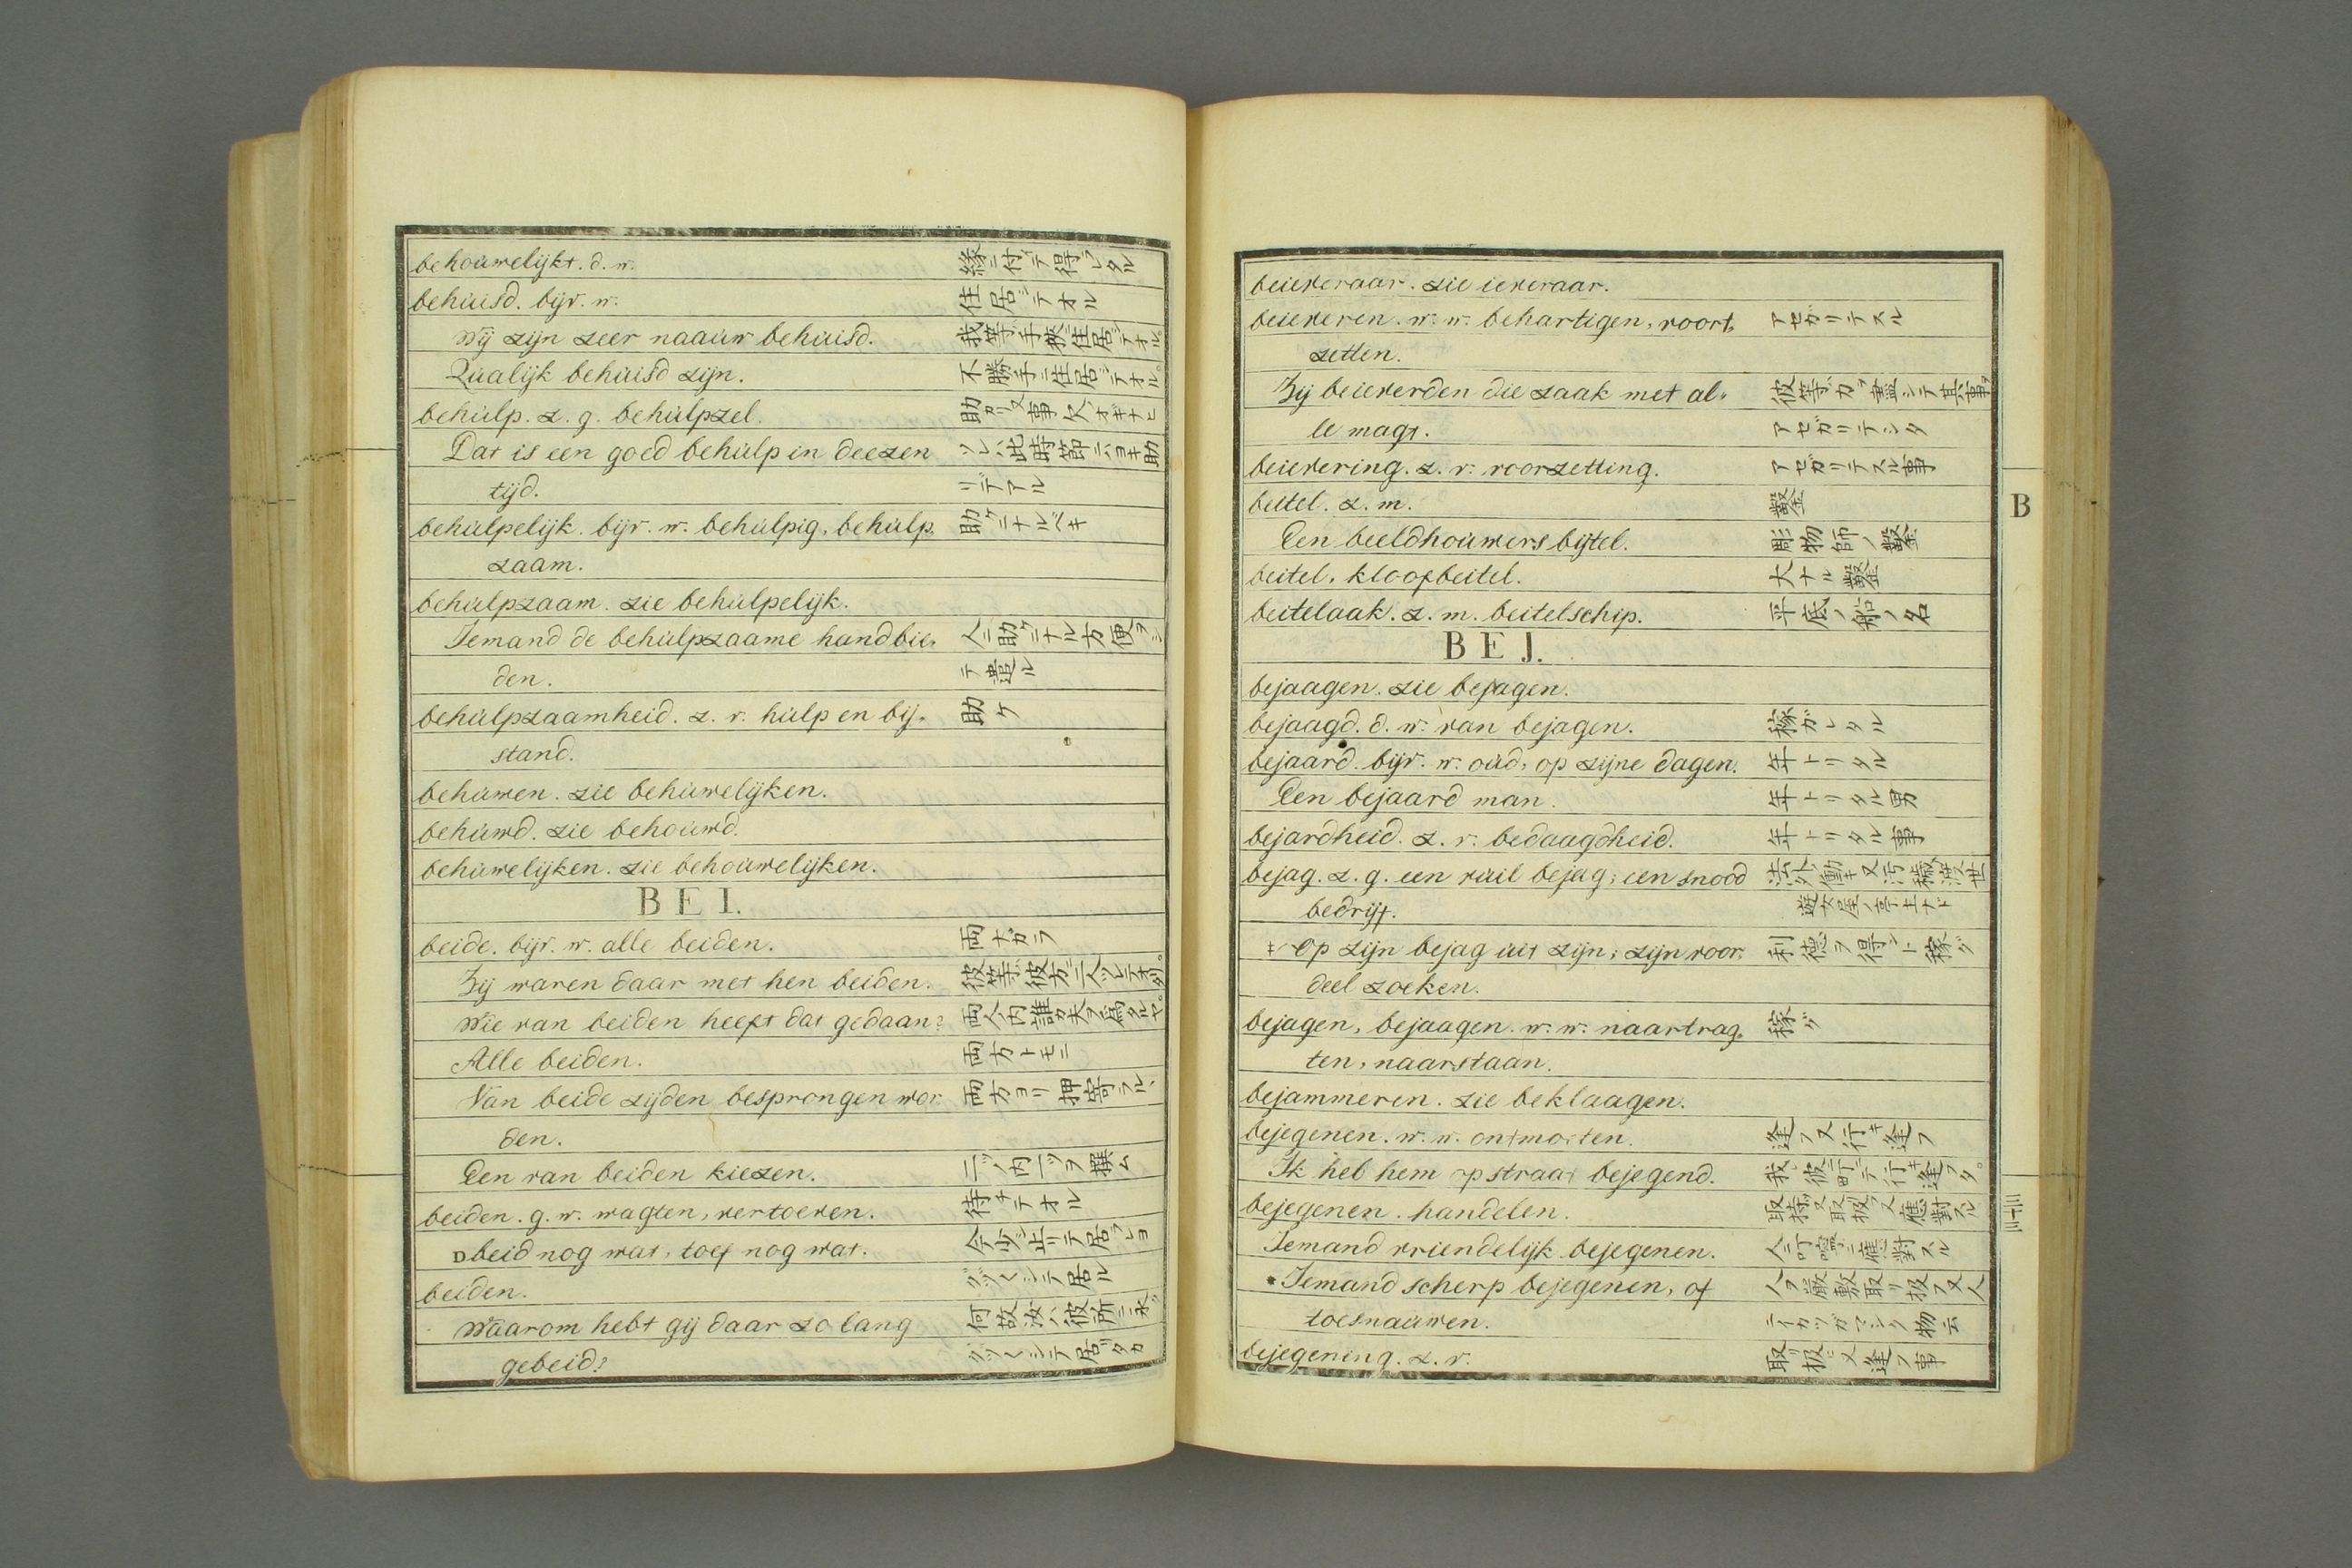 behouwelijkt. d. w. 縁ニ付テ得レタル
behuisd. bijv. w. 住居シテオル
Wij zijn zeer naauw behuisd. 我等手狭住居シテオル。
Qualijk behuisd zijn. 不勝手ニ住居シテオル。
behulp. z. g. behulpzel. 助カリ又事欠オギナヒ
Dat is een goed behulp in deezen ソレハ此時節ニハヨキ助
tijd. リデアル
behulpelijk. bijv. w. behulpig, behulp, 助ケニナルベキ
zaam.
behulpzaam. zie behulpelijk.
Iemand de behulpzaame hand bie, 人ニ助ケニナル方便ヲシ
den. テ遣ル
behulpzaamheid. z. v. hulp en bij, 助ケ
stand.
behuwen. zie behuwelijken.
behuwd. zie behouwd.
behuwelijken. zie behouwelijken.
BEI.
beide. bijv. w. alle beiden. 両ナガラ
Zij waren daar met hen beiden. 彼等彼方ニ二人ツレテオツタ。
Wie van beiden heeft dat gedaan? 両人内誰カ夫ヲ為タルヤ。
Alle beiden. 両方トモニ
Van beide zijden besprongen wor. 両方ヨリ押寄ラルヽ
den.
Een van beiden kiezen. 二ツノ内一ツヲ撰ム
beiden. g. w. wagten, vertoeven. 待チテオル
D beid nog wat, toef nog wat. 今少シ止リテ居ヨ
beiden. グヅ〱シテ居ル
Waarom hebt gij daar zo lang 何故汝ハ彼所ニ永ク
gebeid? グヅ〱シテ居タカ
beieveraar. zie ieveraar.
beieveren. w. w. behartigen, voort, アセガリテスル
zetten.
Zij beieverden die zaak met al, 彼等力ヲ盡シテ其事ヲ
le magt. アセガリテシタ
beievering. z. v. voorzetting. アセガリテスル事
beitel. z. m. 鑿
Een beeldhouwers bijtel. 彫物師ノ鑿
beitel, kloofbeitel. 大ナル鑿
beitelaak. z. m. beitelschip. 平底ノ船ノ名
B
BEJ.
bejaagen. zie bejagen.
bejaagd. d. w. van bejagen. 稼ガレタル
bejaard. bijv. w. oud, op zijne dagen. 年トリタル
Een bejaard man. 年トリタル男
bejardheid. z. v. bedaagdheid. 年トリタル事
bejag. z. g. een vuil bejag; een snood 法外ノ働キ又汚穢渡世
bedrijf. 遊女屋ノ亭主ナド
op zijn bejag uit zijn; zijn voor. 利徳ヲ得ント稼グ
deel zoeken.
bejagen, bejaagen. w. w. naartrag, 稼グ
ten, naarstaan.
bejammeren. zie beklaagen.
bejegenen. w. w. ontmoeten. 逢フ又行キ逢フ
Ik heb hem op straat bejegend. 我レ彼ニ町ニテ行キ逢フタ。
bejegenen. handelen. 取持又取扱フ又應對スル
三十三
Iemand vriendelijk bejegenen. 人ニ叮嚀ニ應對スル
Iemand scherp bejegenen, of 人ヲ嚴敷取リ扱フ又人
toesnauwen. ニイカツガマシク物云
bejegening. z. v. 取リ扱ヒ又逢フ事